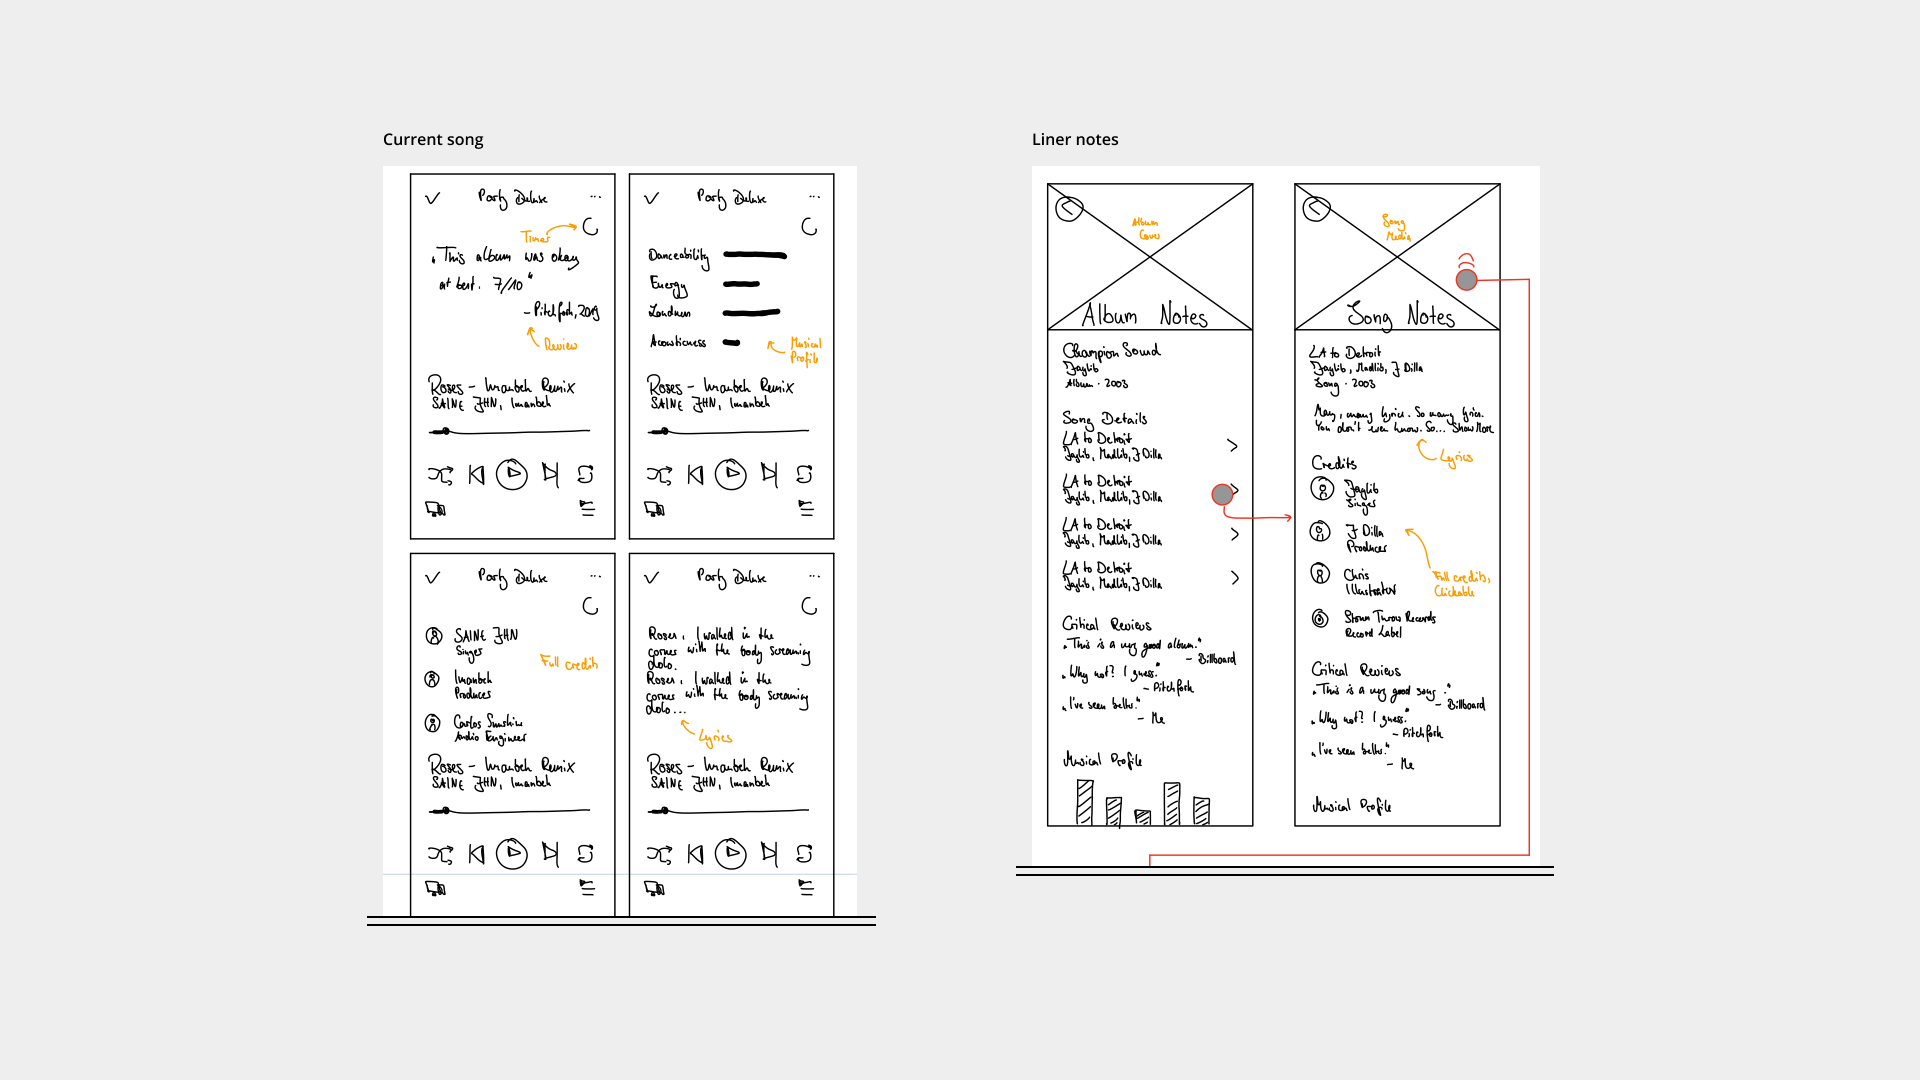 Current song
Party Deluxe
Timer
„This album was okay
at best. 7/10“
– Pitchfork, 2019
Review
Roses – Imanbek Remix
SAINt JHN, Imanbek
Party Deluxe
Danceability
Energy
Loudness
Acousticness
Musical
Profile
Roses – Imanbek Remix
SAINt JHN, Imanbek
Party Deluxe
SAINt JHN
Singer
Full credits
Imanbek
Producer
Carlos Sunshine
Audio Engineer
Roses – Imanbek Remix
SAINt JHN, Imanbek
Party Deluxe
Roses, I walked in the
corner with the body screaming
dolo.
Roses, I walked in the
corner with the body screaming
dolo...
Lyrics
Roses – Imanbek Remix
SAINt JHN, Imanbek
Liner notes
Album
Cover
Album Notes
Champion Sound
Jaylib
Album · 2003
Song Details
LA to Detroit
Jaylib, Madlib, J Dilla
LA to Detroit
Jaylib, Madlib, J Dilla
LA to Detroit
Jaylib, Madlib, J Dilla
LA to Detroit
Jaylib, Madlib, J Dilla
Critical Reviews
„This is a very good album.“
– Billboard
„Why not? I guess.“
– Pitchfork
„I've seen better.“
– Me
Musical Profile
Song
Media
Song Notes
LA to Detroit
Jaylib, Madlib, J Dilla
Song · 2003
Many, many lyrics. So many lyrics.
You don't even know. So... Show More
Lyrics
Credits
Jaylib
Singer
J Dilla
Producer
Full credits,
Clickable
Chris
Illustrator
Stones Throw Records
Record Label
Critical Reviews
„This is a very good song.“
– Billboard
„Why not? I guess.“
– Pitchfork
„I've seen better.“
– Me
Musical Profile